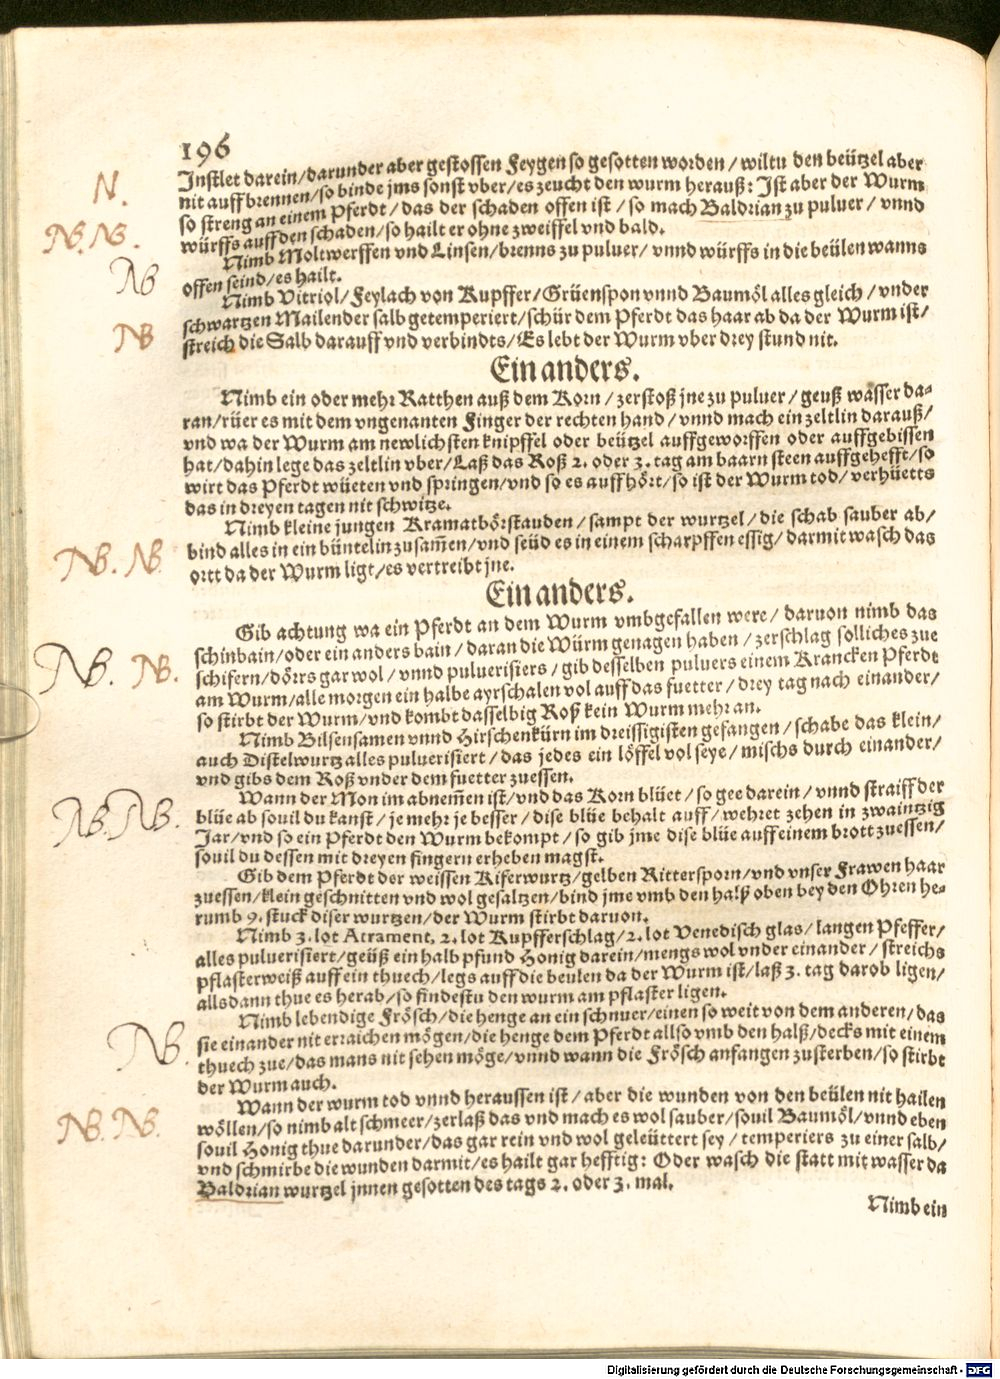 196
Instlet darein/darunder aber gestossen Feygen so gesotten worden / wiltu den beützel aber
nit auffbrennen/so binde jms sonst vber/es zeucht den wurm herauß: Ist aber der Wurm
so streng an einem Pferdt / das der schaden offen ist / so mach Baldrian zu puluer / vnnd
würffs auff den schaden/so hailt er ohne zweiffel vnd bald.
Nimb Moltwerffen vnd Linsen/brenns zu puluer/ vnnd würffs in die beülen wanns
offen seind/es hailt.
Nimb Vitriol/Feylach von Kupffer/Grüenspon vnnd Baumöl alles gleich / vnder
schwartzen Mailender salb getemperiert/schür dem Pferdt das haar ab da der Wurm ist/
streich die Salb darauff vnd verbindts/Es lebt der Wurm vber drey stund nit.
Ein anders.
Nimb ein oder mehr Ratthen auß dem Korn / zerstoß jne zu puluer / geuß wasser da-
ran/rüer es mit dem vngenanten Finger der rechten hand / vnnd mach ein zeltlin darauß/
vnd wa der Wurm am newlichsten knipffel oder beützel auffgeworffen oder auffgebissen
hat/dahin lege das zeltlin vber/Laß das Roß 2. oder 3. tag am baarn steen auffgehefft/so
wirt das Pferdt wüeten vnd springen/vnd so es auffhört/so ist der Wurm tod/ verhüetts
das in dreyen tagen nit schwitze.
Nimb kleine jungen Kramatbörstauden / sampt der wurtzel / die schab sauber ab/
bind alles in ein büntelin zusam̄en/vnd seüd es in einem scharpffen essig/ darmit wasch das
ortt da der Wurm ligt/es vertreibt jne.
Ein anders.
Gib achtung wa ein Pferdt an dem Wurm vmbgefallen were/ daruon nimb das
schinbain/oder ein anders bain / daran die Würm genagen haben / zerschlag solliches zue
schifern/dörrs gar wol / vnnd puluerisiers / gib desselben puluers einem Krancken Pferdt
am Wurm/alle morgen ein halbe ayrschalen vol auff das fuetter / drey tag nach einander/
so stirbt der Wurm/vnd kombt dasselbig Roß kein Wurm mehr an.
Nimb Bilsensamen vnnd Hirschenkürn im dreissigisten gefangen / schabe das klein/
auch Distelwurtz alles puluerisiert / das jedes ein löffel vol seye / mischs durch einander/
vnd gibs dem Roß vnder dem fuetter zuessen.
Wann der Mon im abnem̄en ist/vnd das Korn blüet / so gee darein / vnnd straiff der
blüe ab souil du kanst / je mehr je besser / dise blüe behalt auff / wehret zehen in zwaintzig
Jar/vnd so ein Pferdt den Wurm bekompt / so gib jme dise blüe auff einem brott zuessen/
souil du dessen mit dreyen fingern erheben magst.
Gib dem Pferdt der weissen Kiferwurtz/gelben Rittersporn/vnd vnser Frawen haar
zuessen/klein geschnitten vnd wol gesaltzen/bind jme vmb den halß oben bey den Ohren he-
rumb 9. stuck diser wurtzen/der Wurm stirbt daruon.
Nimb 3. lot Atrament, 2. lot Kupfferschlag/2. lot Venedisch glas/langen Pfeffer/
alles puluerisiert/geüß ein halb pfund Honig darein/mengs wol vnder einander / streichs
pflasterweiß auff ein thuech/legs auff die beulen da der Wurm ist/laß 3. tag darob ligen/
allsdann thue es herab/so findestu den wurm am pflaster ligen.
Nimb lebendige Frösch/die henge an ein schnuer/einen so weit von dem anderen/das
sie einander nit erraichen mögen/die henge dem Pferdt allso vmb den halß/decks mit einem
thuech zue/das mans nit sehen möge/vnnd wann die Frösch anfangen zusterben/so stirbt
der Wurm auch.
Wann der wurm tod vnnd heraussen ist/ aber die wunden von den beülen nit hailen
wöllen/so nimb alt schmeer/zerlaß das vnd mach es wol sauber/souil Baumöl/vnnd eben
souil Honig thue darunder/das gar rein vnd wol geleüttert sey / temperiers zu einer salb/
vnd schmirbe die wunden darmit/es hailt gar hefftig: Oder wasch die statt mit wasser da
Baldrian wurtzel jnnen gesotten des tags 2. oder 3. mal.
Nimb ein
N.
NB. NB.
NB
NB
NB. NB.
NB. NB.
NB. NB.
NB.
NB. NB.
Digitalisierung gefördert durch die Deutsche Forschungsgemeinschaft - DFG